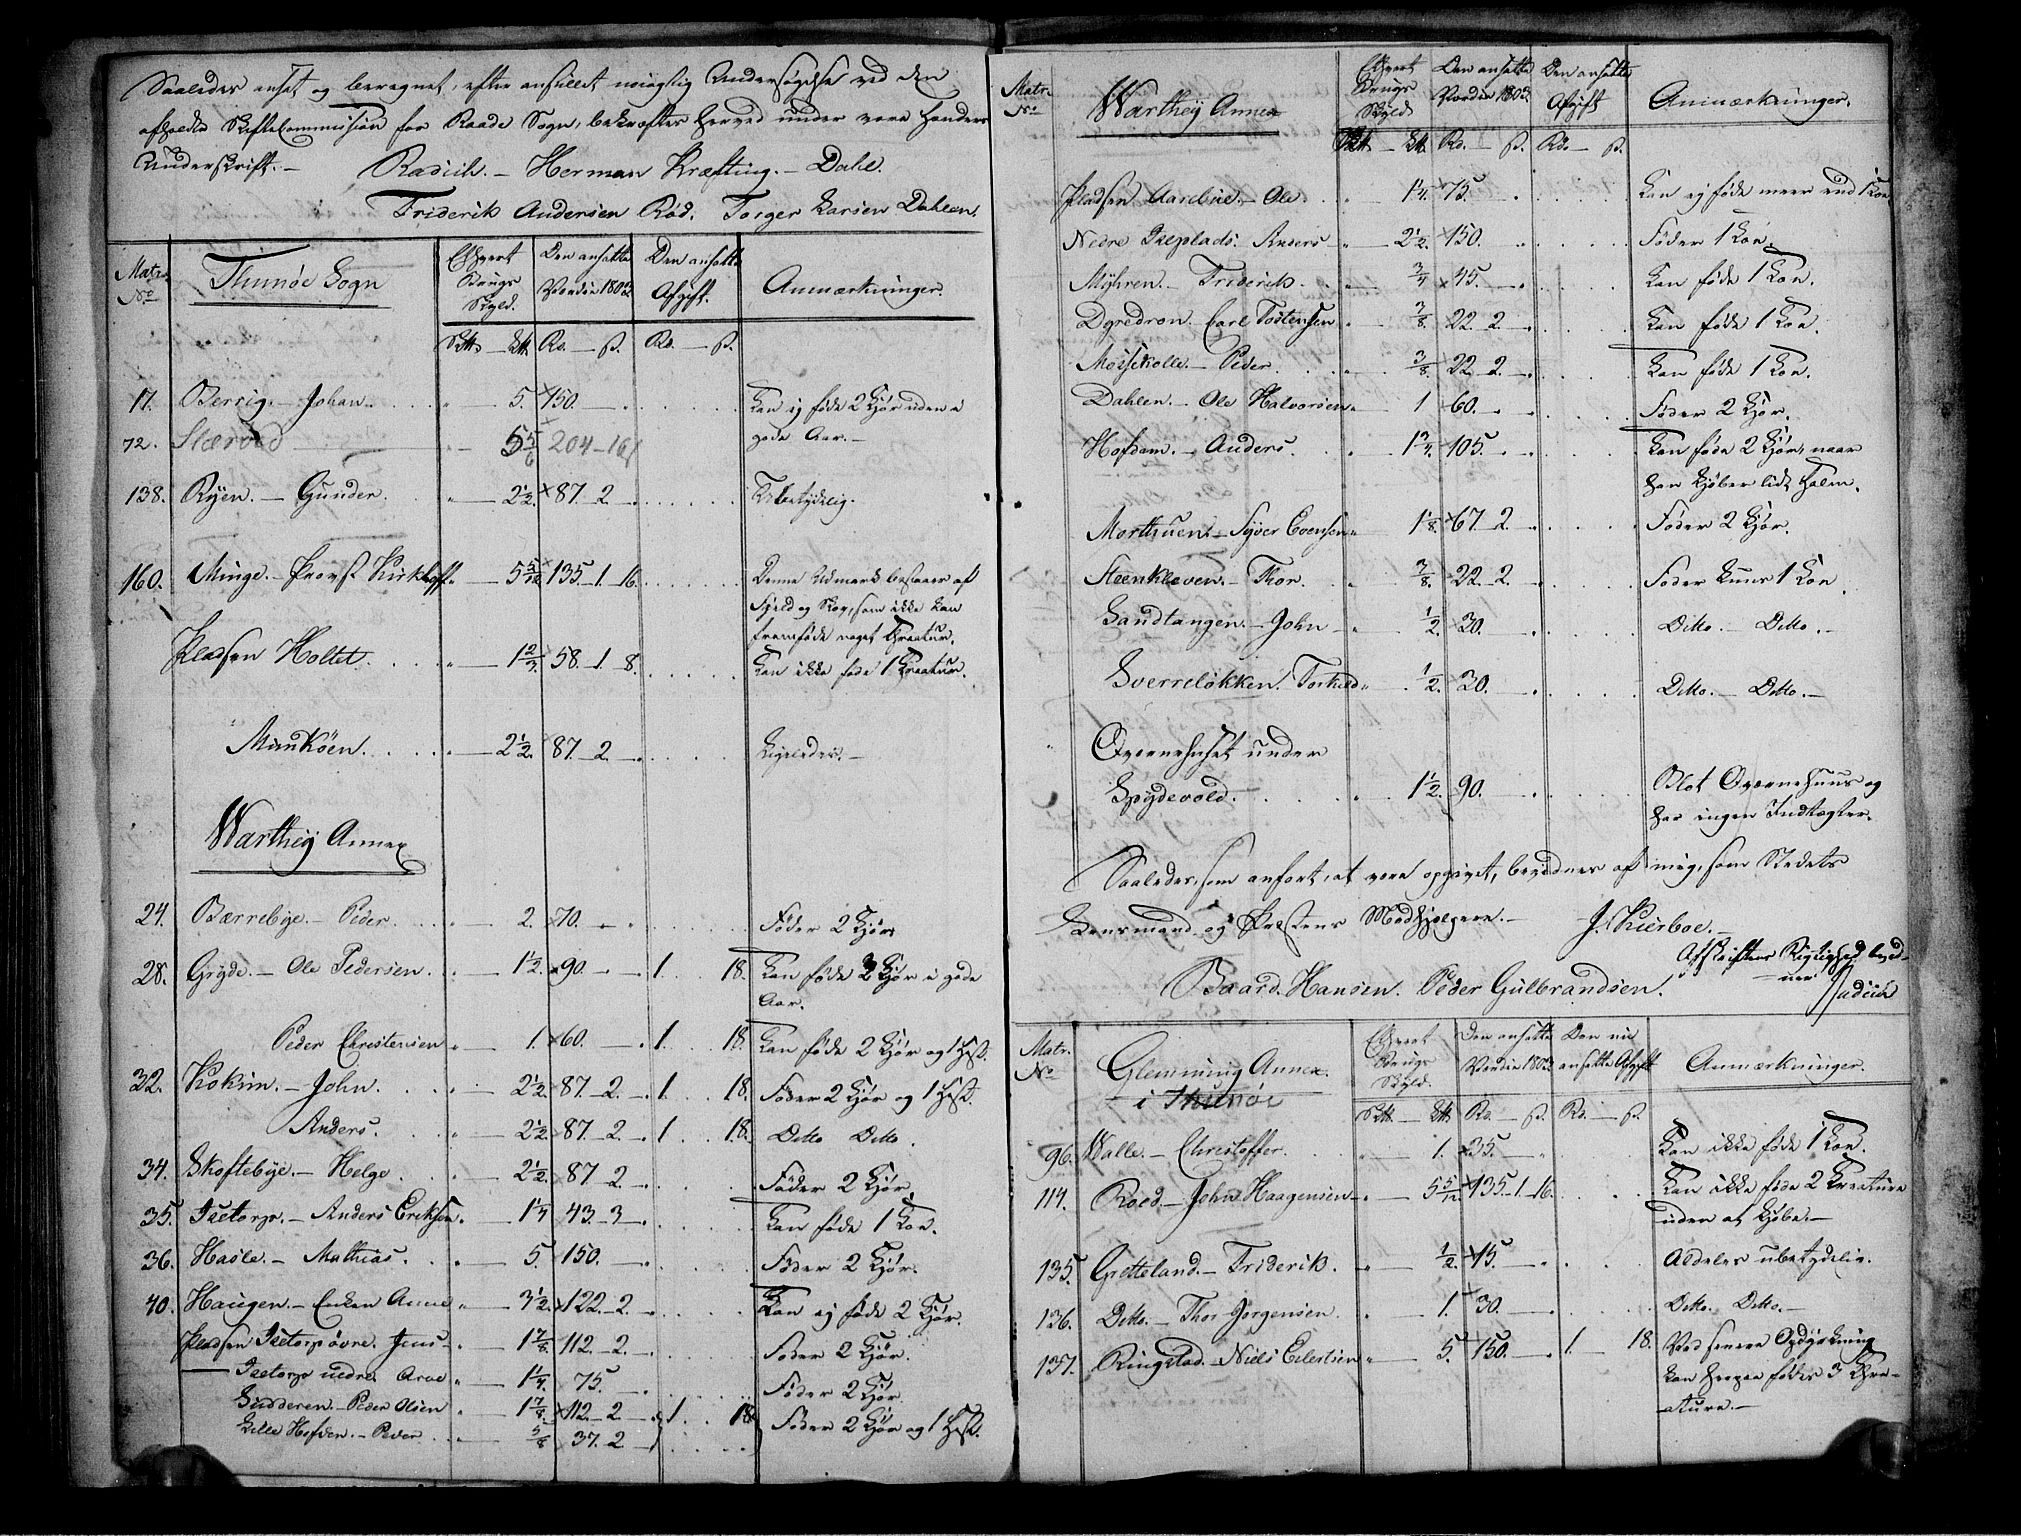 Saaledes ansat og beregnet, efter anstillet nøiagtig Undersøgelse ved den
afholdte Skattecommission for Raade Sogn, bekræftes herved under vore Hænders
Underskrift. -
Rasich. - Herman Kræfting. - Dahl.
Friderik Andersen Röd. Torger Larsen Dahlen.
Matr. No
Thunöe Sogn
Ethvert Brugs Skyld.
Den ansatte Værdie 1803
Den ansatte Afgift.
Anmærkninger.
Rd. - ß. Rd. - ß.
17. Berrig. - Johan. " - 5. 150. - Kan ej føde 2 Kjør uden i
gode Aar. -
72. Slærvold " - 5 5/6 204 - 16
138. Ryen. - Gunder. " - 2 1/2. 87. 2. Ubetydelig.
160. Minge. - Provst Kirkhoff " - 5 5/12 135. 1. 16. Denne Udmark bestaaer af
Fjeld og Skov, som ikke kan
fremføde noget Creatur.
Pladsen Holtet. " - 1 2/3. 58. 1. 8. Kan ikke føde 1 Kreatur.
Munköen. " - 2 1/2. 87. 2. Ligeledes. -
Warthey Annex
24. Bærrebye. - Peder. " - 2. 70. - Føder 2 Kjør.
28. Gryde. - Ole Pedersen. " - 1 1/2. 90. - 1. 18. Kan føde 2 Kjør i gode
Aar.
Peder Christensen " - 1. 60. - 1. 18. Kan føde 2 Kjør og 1 Hest.
32. Kokim. - John. " - 2 1/2. 87. 2. 1. 18. Føder 2 Kjør og 1 Hest.
Anders. " - 2 1/2. 87. 2. 1. 18. Ditto Ditto.
34. Skoftebye. - Helge " - 2 1/2. 87 2. Føder 2 Kjør.
35. Isetorp. - Anders Eriksen. " - 1 1/4 43. 3. Kan føde 1 Koe.
36. Hasle. - Mathias. " - 5. 150. - Føder 2 Kjør.
40. Haugen. - Enken Anne " - 3 1/2. 122. 2. Kan ej føde 2 Kjør.
Pladsen Isetorp övre. Jens - " - 1 7/8. 112. 2. Føder 2 Kjør.
- Isetorp nedre. Arve " - 1 1/4. 75. Føder 2 Kjør.
Gudderen. - Peder Olsen " - 1 7/8. 112. 2 1. 18.
Lille Hofden. - Peder " - 5/8 37. 2 Føder 2 Kjør og 1 Hest.
Matr. No
Warthey Annex
Ethvert Brugs Skyld
Den ansatte Værdie 1803.
Den ansatte Afgift
Anmærkninger.
Rd. - ß. Rd. - ß.
Pladsen Aarebue. - Ole " 1 1/4. 75. Kan ej føde meer end 1 Koe
Nedre Iseplads. Anders " - 2 1/2. 150. Føder 1 Koe.
Myhren. - Friderik. " - 3/4 45. Kan føde 1 Koe.
Carl Tostensen " - 3/8. 22. 2. Kan føde 1 Koe.
Mossekolle. - Peder. " - 3/8. 22. 2. Kan føde 1 Koe.
Dahlen. - Ole Halvorsen " - 1 60. Føder 2 Kjør.
Hofdam. - Anders. " - 1 3/4. 105. Kan føde 2 Kjør, naar
han kjøber lidt Halm.
Morthuen. - Syver Evensen " 1 1/8. 67. 2. Føder 2 Kjør.
Steenkleven. - Thor. " - 3/8. 22. 2. Føder kuns 1 Koe
Sandtangen. - John - " - 1/2. 30. Ditto. - Ditto. -
Sverrelökken. Torkild " 1/2. 30. Ditto. - Ditto. -
Qværnehuset under
Spydevold. " 1 1/2. 90. Blot Qværnehuus og
har ingen Indtægter.
Saaledes, som anført, at være opgivet, bevidnes af mig, som Stedets
Lensmand og Præstens Medhjelpere. - J. Kierboe. -
Afskriftens Rigtighed bevid-
ner
Baard Hansen. Peder Gulbrandsen.
Matr. No
Glemming Annex.
i Thunöe
Ethvert Brugs Skyld.
Den ansatte Værdie 1803
Den nu ansatte Afgift
Anmærkninger.
Rd. - ß. Rd. - ß.
96. Walle. - Christoffer. " - 1. 35. - Kan ikke føde 1 Koe.
114. Roed. - John Haagensen " 5 5/12. 135. 1. 16. Kan ikke føde 2 Kreature
uden at kjøbe. -
135. Gretteland. - Friderik. " - 1/2. 15. Aldeles ubetydelig.
136. Ditto. - Thor Jorgensen. " - 1. 30. Ditto. Ditto. -
137. Ringstad. - Niels Eilertsen " - 5. 150. - 1. - 18. Ved senere Opdyrkning
kan herpaa fødes 3 Kre-
ature. -